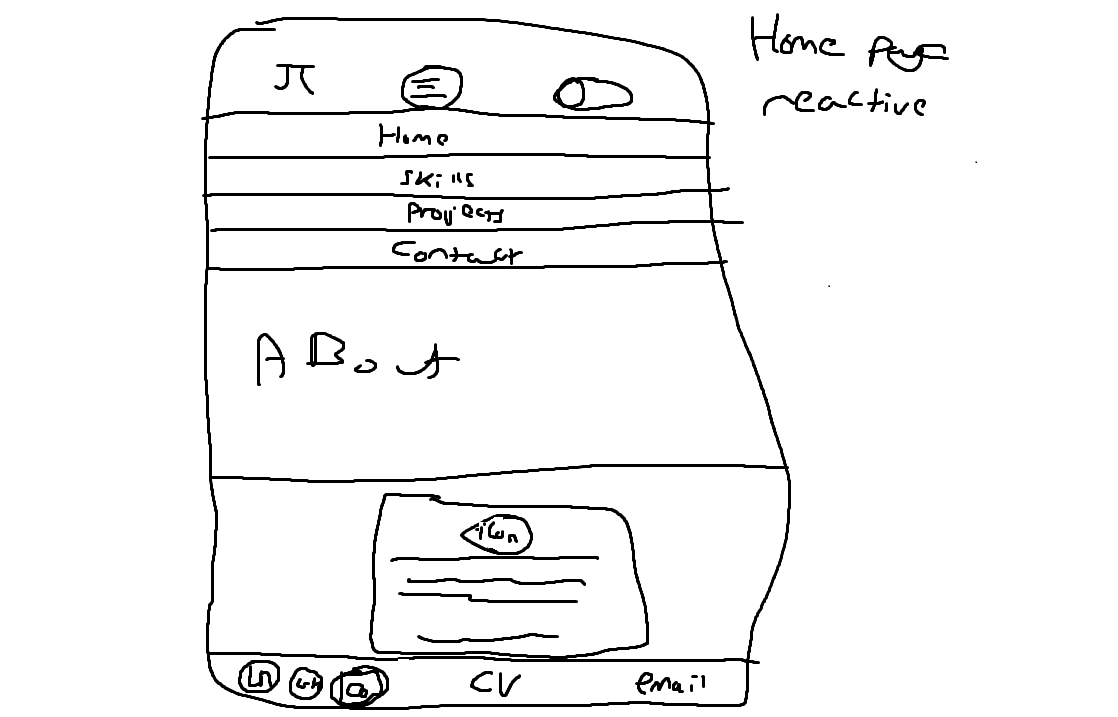 Home page
reactive
π
Home
Skills
Projects
Contact
About
icon
in
CV
email